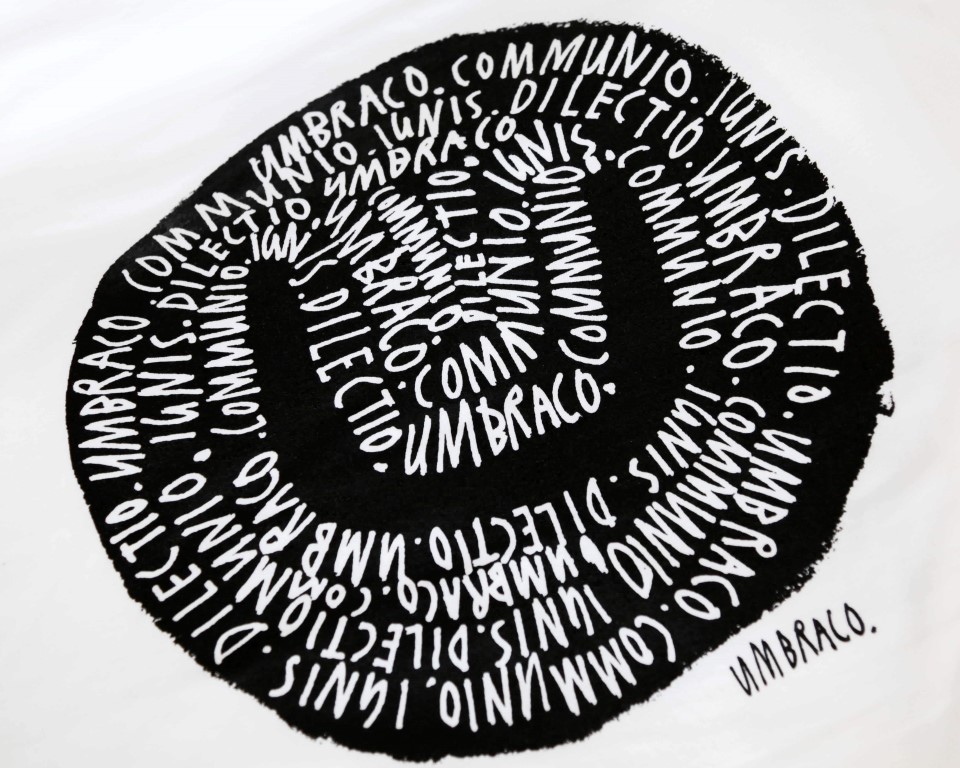 UMBRACO. COMMUNIO. IGNIS. DILECTIO. UMBRACO. COMMUNIO. IGNIS. DILECTIO. UMBRACO
COMMUNIO. IGNIS. DILECTIO. UMBRACO. COMMUNIO. IGNIS. DILECTIO. COMMUNIO. IGNIS. DILECTIO
UMBRACO. COMMUNIO. IGNIS. DILECTIO. UMBRACO. COMMUNIO.
IGNIS. DILECTIO.
UMBRACO.
COMMUNIO.
DILECTIO.
COMMUNIO. IGNIS.
COMMUNIO
UMBRACO.
UMBRACO.